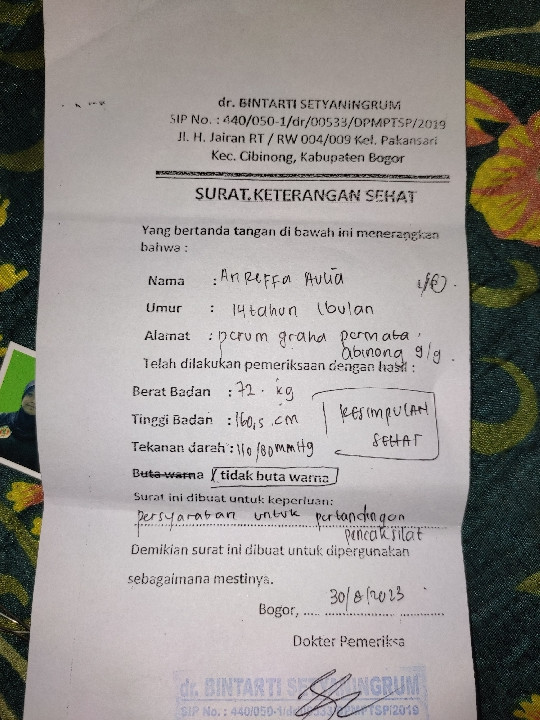 dr. BINTARTI SETYANINGRUM
SIP No. : 440/050-1/dr/00533/DPMPTSP/2019
Jl. H. Jairan RT / RW 004/009 Kel. Pakansari
Kec. Cibinong, Kabupaten Bogor
SURAT KETERANGAN SEHAT
Yang bertanda tangan di bawah ini menerangkan
bahwa :
Nama : Anreffa Aulia
Umur : 14 tahun 1 bulan
Alamat : perum graha permata
9/9
Telah dilakukan pemeriksaan dengan hasil :
Berat Badan : 72 kg
Tinggi Badan : 160,5 cm
KESIMPULAN
SEHAT
Tekanan darah : 110/80 mmHg
Buta warna / tidak buta warna
Surat ini dibuat untuk keperluan:
persyaratan untuk pertandingan
pencaksilat
Demikian surat ini dibuat untuk dipergunakan
sebagaimana mestinya.
Bogor, 30/8/2023
Dokter Pemeriksa
dr. BINTARTI SETYANINGRUM
SIP No. : 440/050-1/dr/00533/DPMPTSP/2019